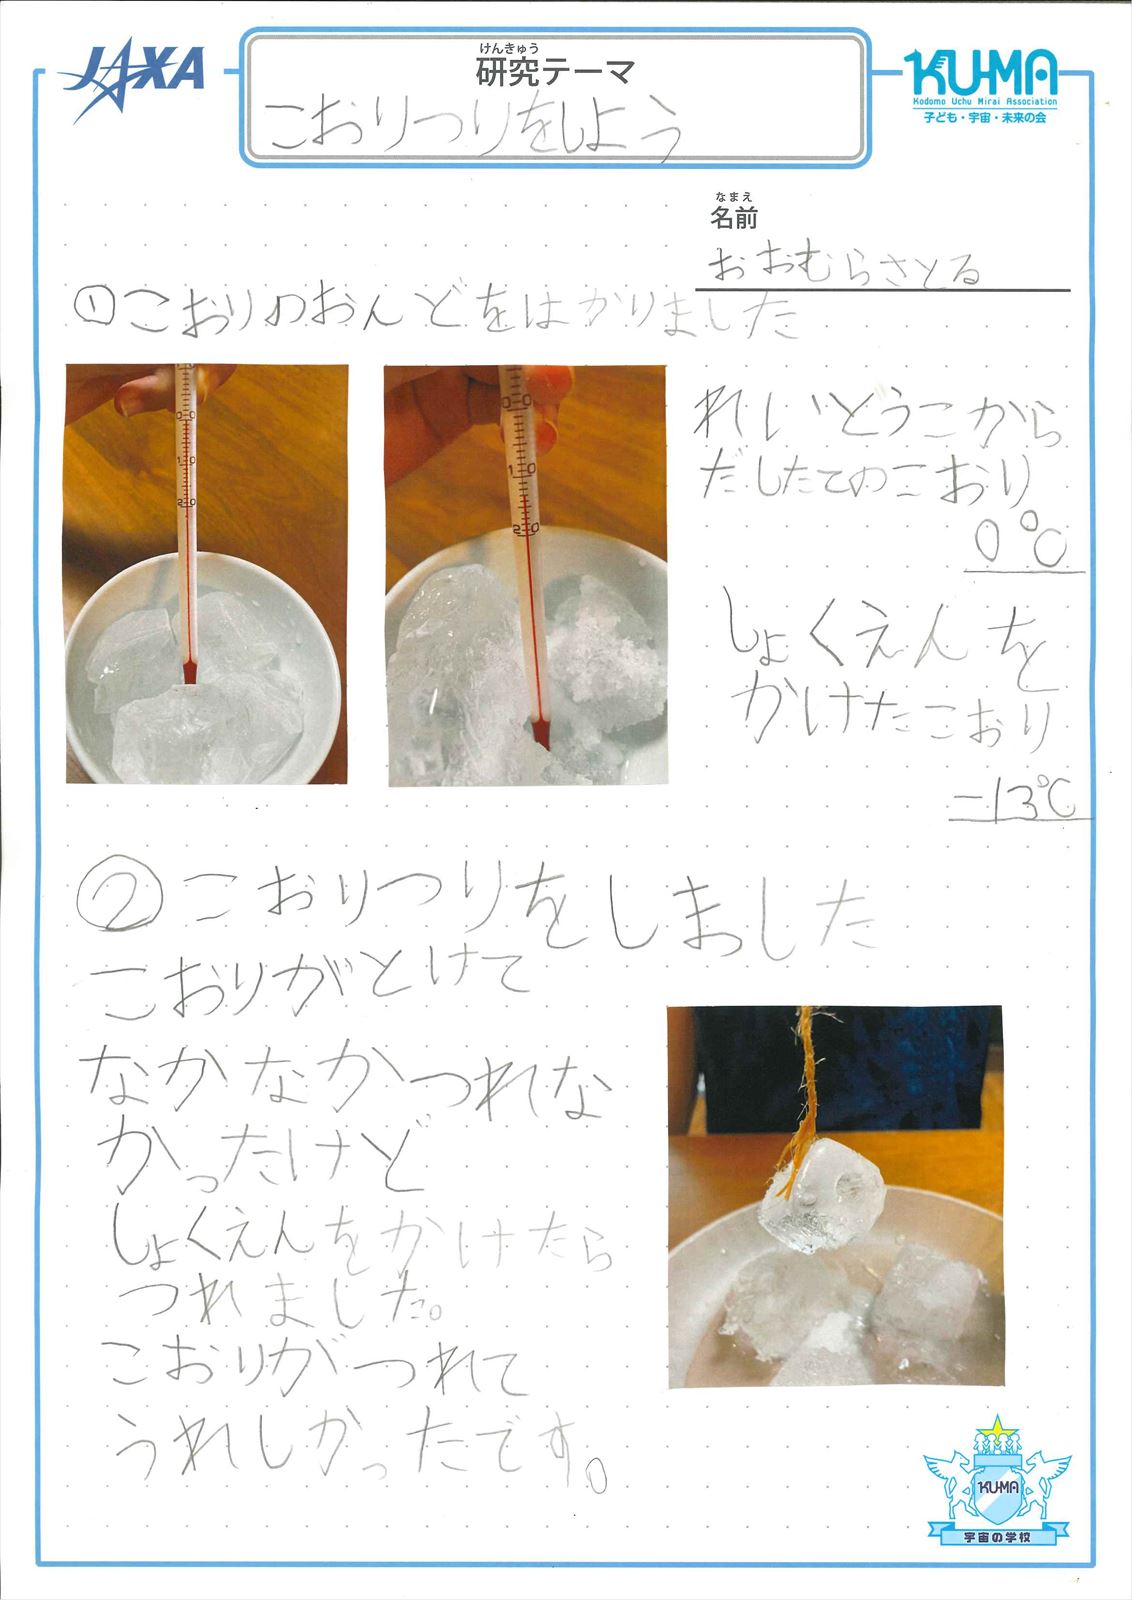 JAXA
けんきゅう
研究テーマ
こおりつりをしよう
KU-MA
Kodomo Uchu Mirai Association
子ども・宇宙・未来の会
なまえ
名前
おおむらさとる
①こおりのおんどをはかりました
れいどうこから
だしたてのこおり
0℃
しょくえんを
かけたこおり
-13℃
0
10
20
0
10
20
②こおりつりをしました
こおりがとけて
なかなかつれな
かったけど
しょくえんをかけたら
つれました。
こおりがつれて
うれしかったです。
KU-MA
宇宙の学校